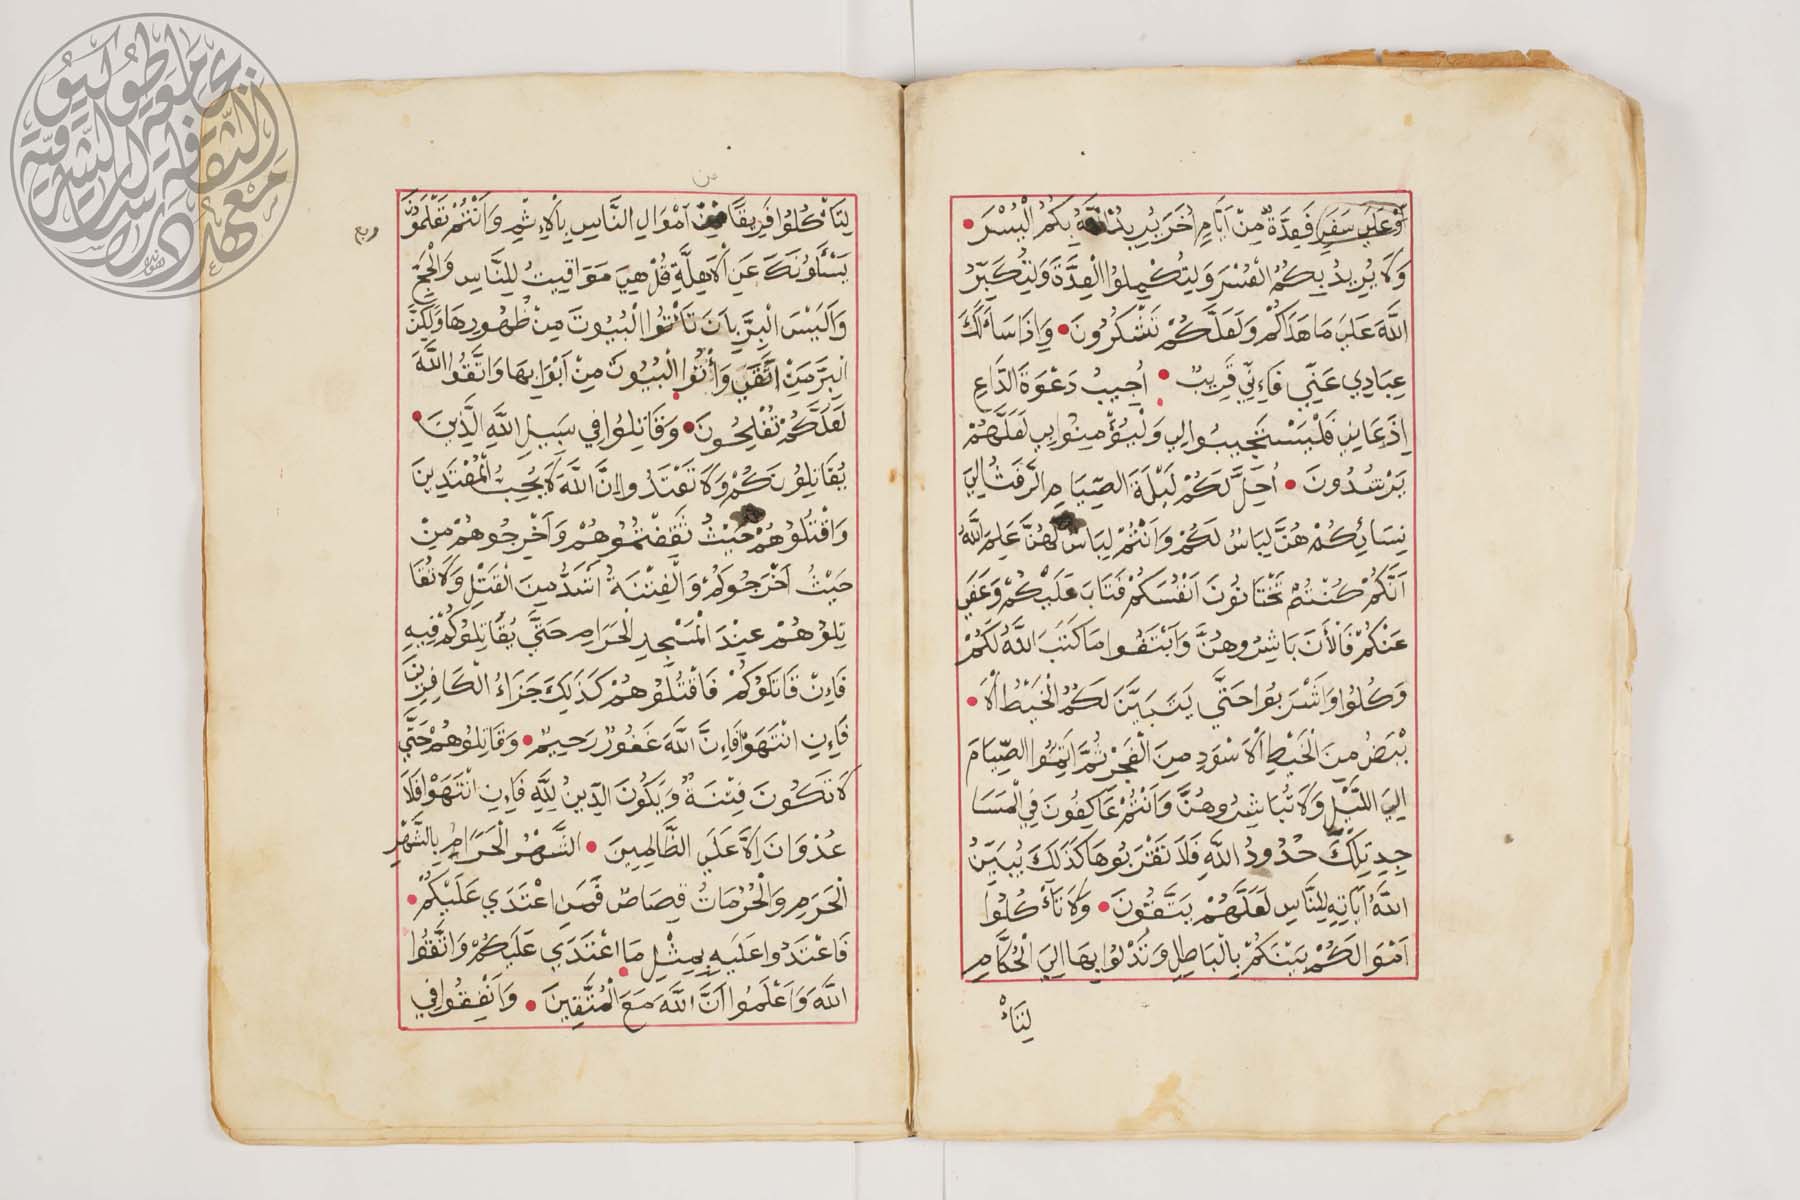 أَوْ عَلَى سَفَرٍ فَعِدَّةٌ مِنْ أَيَّامٍ أُخَرَ يُرِيدُ اللَّهُ بِكُمُ الْيُسْرَ
وَلَا يُرِيدُ بِكُمُ الْعُسْرَ وَلِتُكْمِلُوا الْعِدَّةَ وَلِتُكَبِّرُ
اللَّهَ عَلَى مَا هَدَاكُمْ وَلَعَلَّكُمْ تَشْكُرُونَ وَإِذَا سَأَلَكَ
عِبَادِي عَنِّي فَإِنِّي قَرِيبٌ أُجِيبُ دَعْوَةَ الدَّاعِ
إِذَا دَعَانِ فَلْيَسْتَجِيبُوا لِي وَلْيُؤْمِنُوا بِي لَعَلَّهُمْ
يَرْشُدُونَ أُحِلَّ لَكُمْ لَيْلَةَ الصِّيَامِ الرَّفَثُ إِلَى
نِسَائِكُمْ هُنَّ لِبَاسٌ لَكُمْ وَأَنْتُمْ لِبَاسٌ لَهُنَّ عَلِمَ اللَّهُ
أَنَّكُمْ كُنْتُمْ تَخْتَانُونَ أَنْفُسَكُمْ فَتَابَ عَلَيْكُمْ وَعَفَى
عَنْكُمْ فَالْأَنَ بَاشِرُوهُنَّ وَابْتَغُوا مَا كَتَبَ اللَّهُ لَكُمْ
وَكُلُوا وَاشْرَبُوا حَتَّى يَتَبَيَّنَ لَكُمُ الْخَيْطُ الْأَ
بْيَضُ مِنَ الْخَيْطِ الْأَسْوَدِ مِنَ الْفَجْرِ ثُمَّ أَتِمُّوا الصِّيَامَ
إِلَى اللَّيْلِ وَلَا تُبَاشِرُوهُنَّ وَأَنْتُمْ عَاكِفُونَ فِي الْمَسَا
جِدِ تِلْكَ حُدُودُ اللَّهِ فَلَا تَقْرَبُوهَا كَذَلِكَ يُبَيِّنُ
اللَّهُ آيَاتِهِ لِلنَّاسِ لَعَلَّهُمْ يَتَّقُونَ وَلَا تَأْكُلُوا
أَمْوَالَكُمْ بَيْنَكُمْ بِالْبَاطِلِ وَتُدْلُوا بِهَا إِلَى الْحُكَّامِ
لِتَأْ
مِن
لِتَأْكُلُوا فَرِيقًا مِنْ أَمْوَالِ النَّاسِ بِالْإِثْمِ وَأَنْتُمْ تَعْلَمُونَ
ربع
يَسْأَلُونَكَ عَنِ الْأَهِلَّةِ قُلْ هِيَ مَوَاقِيتُ لِلنَّاسِ وَالْحَجِّ
وَلَيْسَ الْبِرُّ بِأَنْ تَأْتُوا الْبُيُوتَ مِنْ ظُهُورِهَا وَلَكِنَّ
الْبِرَّ مَنِ اتَّقَى وَأْتُوا الْبُيُوتَ مِنْ أَبْوَابِهَا وَاتَّقُوا اللَّهَ
لَعَلَّكُمْ تُفْلِحُونَ وَقَاتِلُوا فِي سَبِيلِ اللَّهِ الَّذِينَ
يُقَاتِلُونَكُمْ وَلَا تَعْتَدُوا إِنَّ اللَّهَ لَا يُحِبُّ الْمُعْتَدِينَ
وَاقْتُلُوهُمْ حَيْثُ ثَقِفْتُمُوهُمْ وَأَخْرِجُوهُمْ مِنْ
حَيْثُ أَخْرَجُوكُمْ وَالْفِتْنَةُ أَشَدُّ مِنَ الْقَتْلِ وَلَا تُقَا
تِلُوهُمْ عِنْدَ الْمَسْجِدِ الْحَرَامِ حَتَّى يُقَاتِلُوكُمْ فِيهِ
فَإِنْ قَاتَلُوكُمْ فَاقْتُلُوهُمْ كَذَلِكَ جَزَاءُ الْكَافِرِينَ
فَإِنِ انْتَهَوْا فَإِنَّ اللَّهَ غَفُورٌ رَحِيمٌ وَقَاتِلُوهُمْ حَتَّى
لَا تَكُونَ فِتْنَةٌ وَيَكُونَ الدِّينُ لِلَّهِ فَإِنِ انْتَهَوْا فَلَا
عُدْوَانَ إِلَّا عَلَى الظَّالِمِينَ الشَّهْرُ الْحَرَامُ بِالشَّهْرِ
الْحَرَمِ وَالْحُرُمَاتُ قِصَاصٌ فَمَنِ اعْتَدَى عَلَيْكُمْ
فَاعْتَدُوا عَلَيْهِ بِمِثْلِ مَا اعْتَدَى عَلَيْكُمْ وَاتَّقُوا
اللَّهَ وَاعْلَمُوا أَنَّ اللَّهَ مَعَ الْمُتَّقِينَ وَأَنْفِقُوا فِي